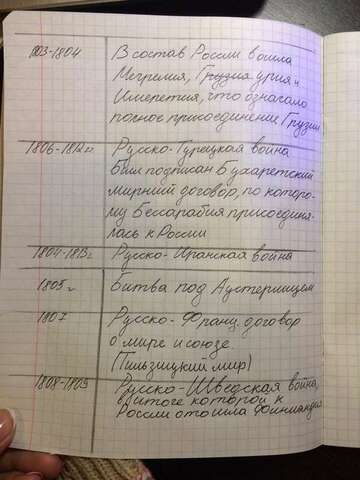 1803-1804 В состав России вошла
Мегрелия, Грузия урия и
Имеретия, что означало
полное присоединение Грузии
1806-1812гг Русско-Турецкая война
был подписан Бухарестский
мирный договор, по которо-
му Бессарабия присоединя-
лась к России
1804-1813г Русско-Иранская война
1805г Битва под Аустерлицем
1807 Русско-Франц. договор
о мире и союзе.
(Тильзитский мир)
1808-1809 Русско-Шведская война,
в итоге которой к
России отошла Финляндия